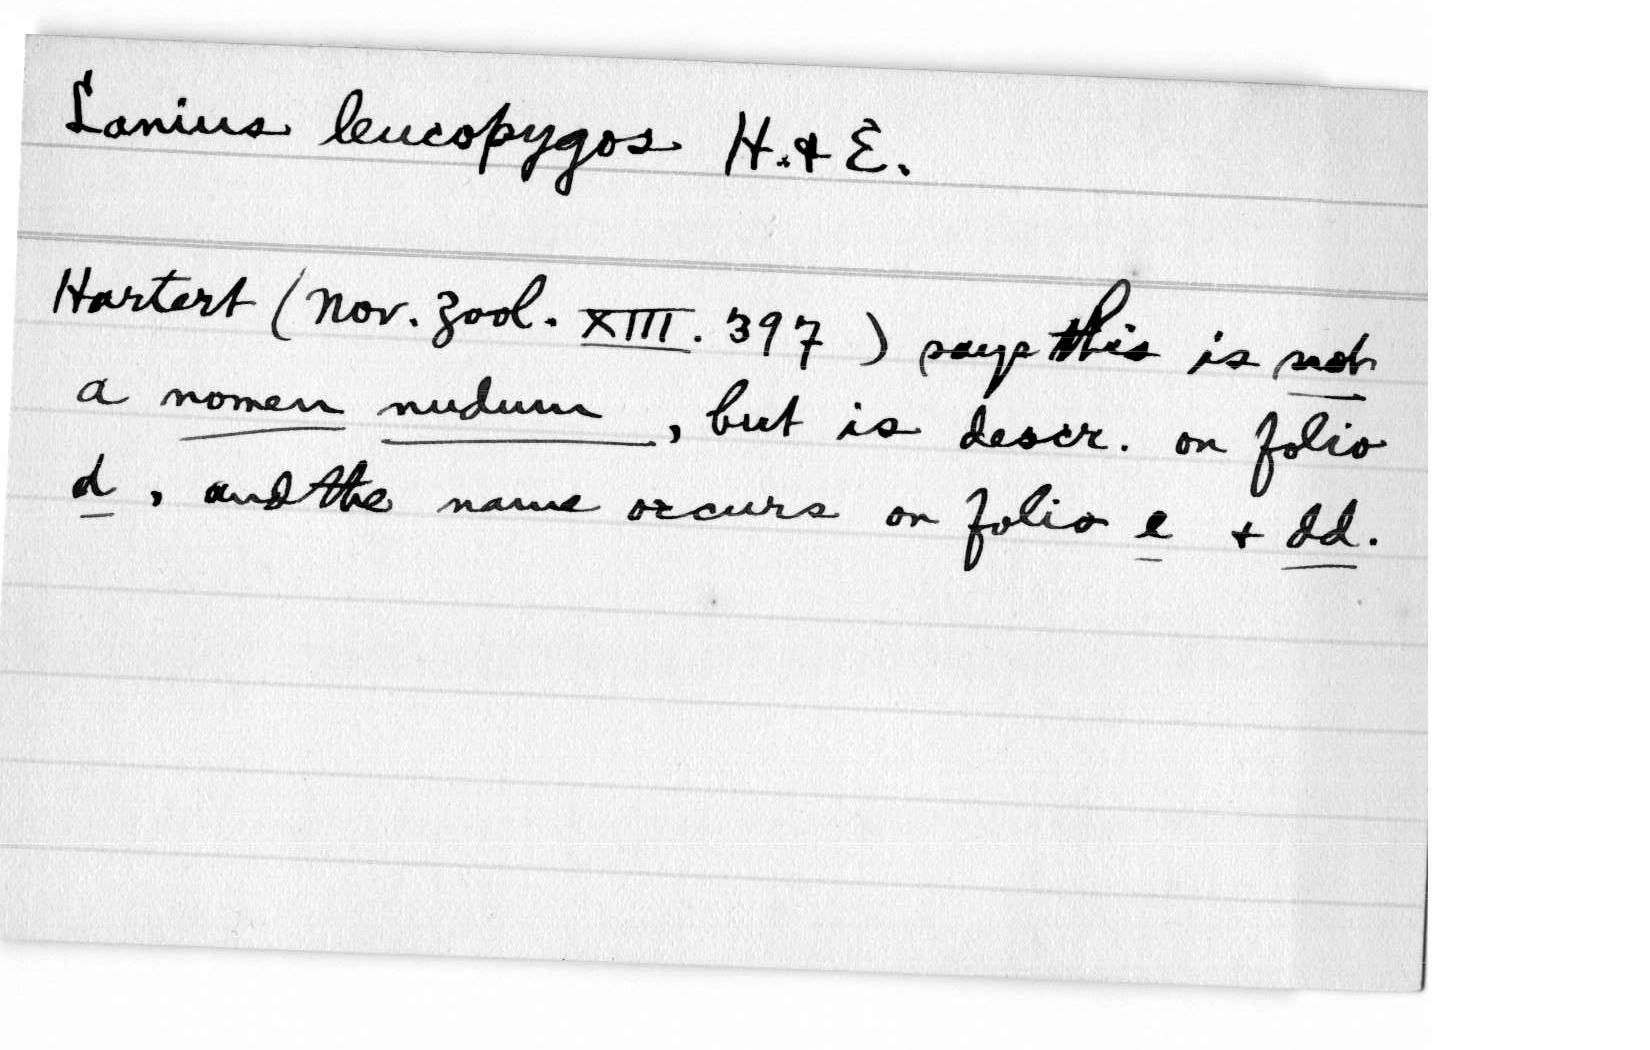 Lanius leucopygos H. & E.
Hartert (Nov. Zool. XIII. 397) says this is not
a nomen nudum, but is descr. on folio
d, and the name occurs on folio e & dd.